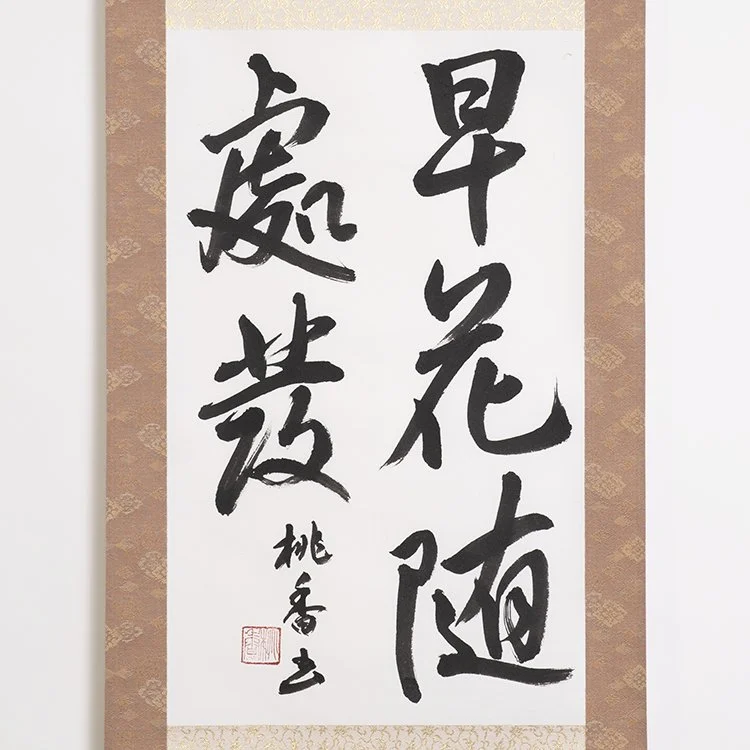 早花随
處發
桃香書